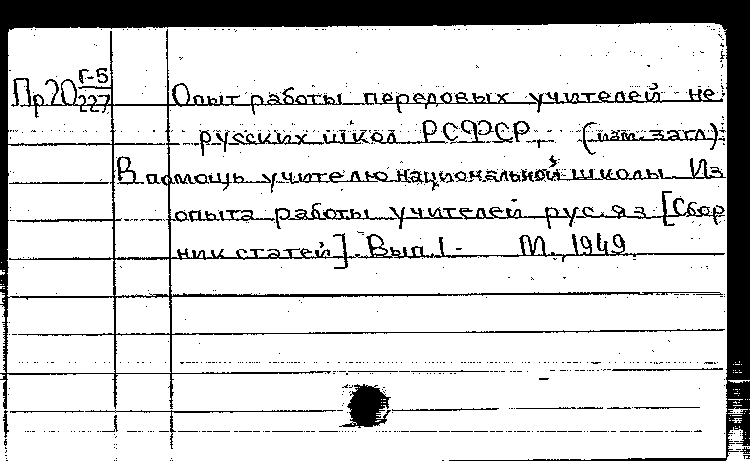 Пр20 Г-5/227 Опыт работы передовых учителей не
русских школ РСФСР, (изм. загл).
В помощь учителю национальной школы. Из
опыта работы учителей рус. яз [Сбор
ник статей]. Вып. 1- М., 1949.